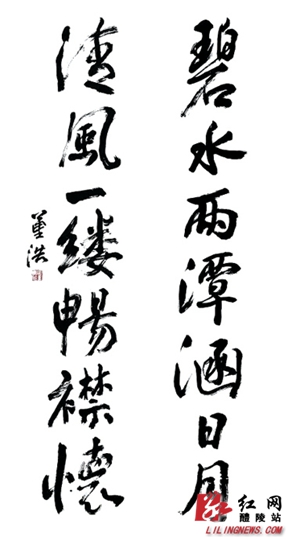 碧水两潭涵日月
清風一缕暢襟懷
董浩
红网
醴陵站
LILINGNEWS.COM